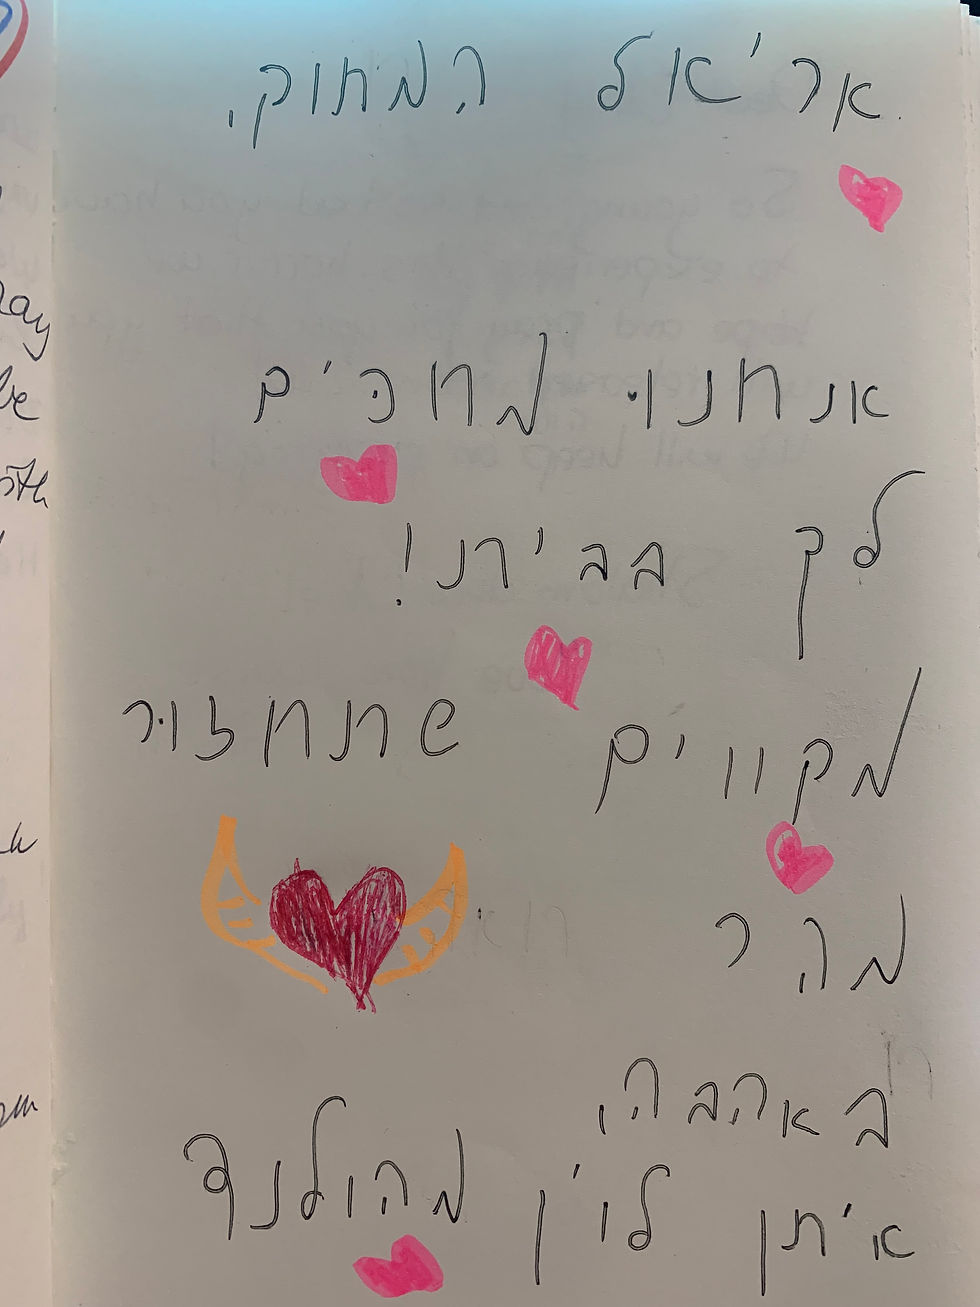 אריאל המתוק,
אנחנו מחכים
לך בבית!
מקווים שתחזור
מהר
באהבה,
איתן לוין מהולנד